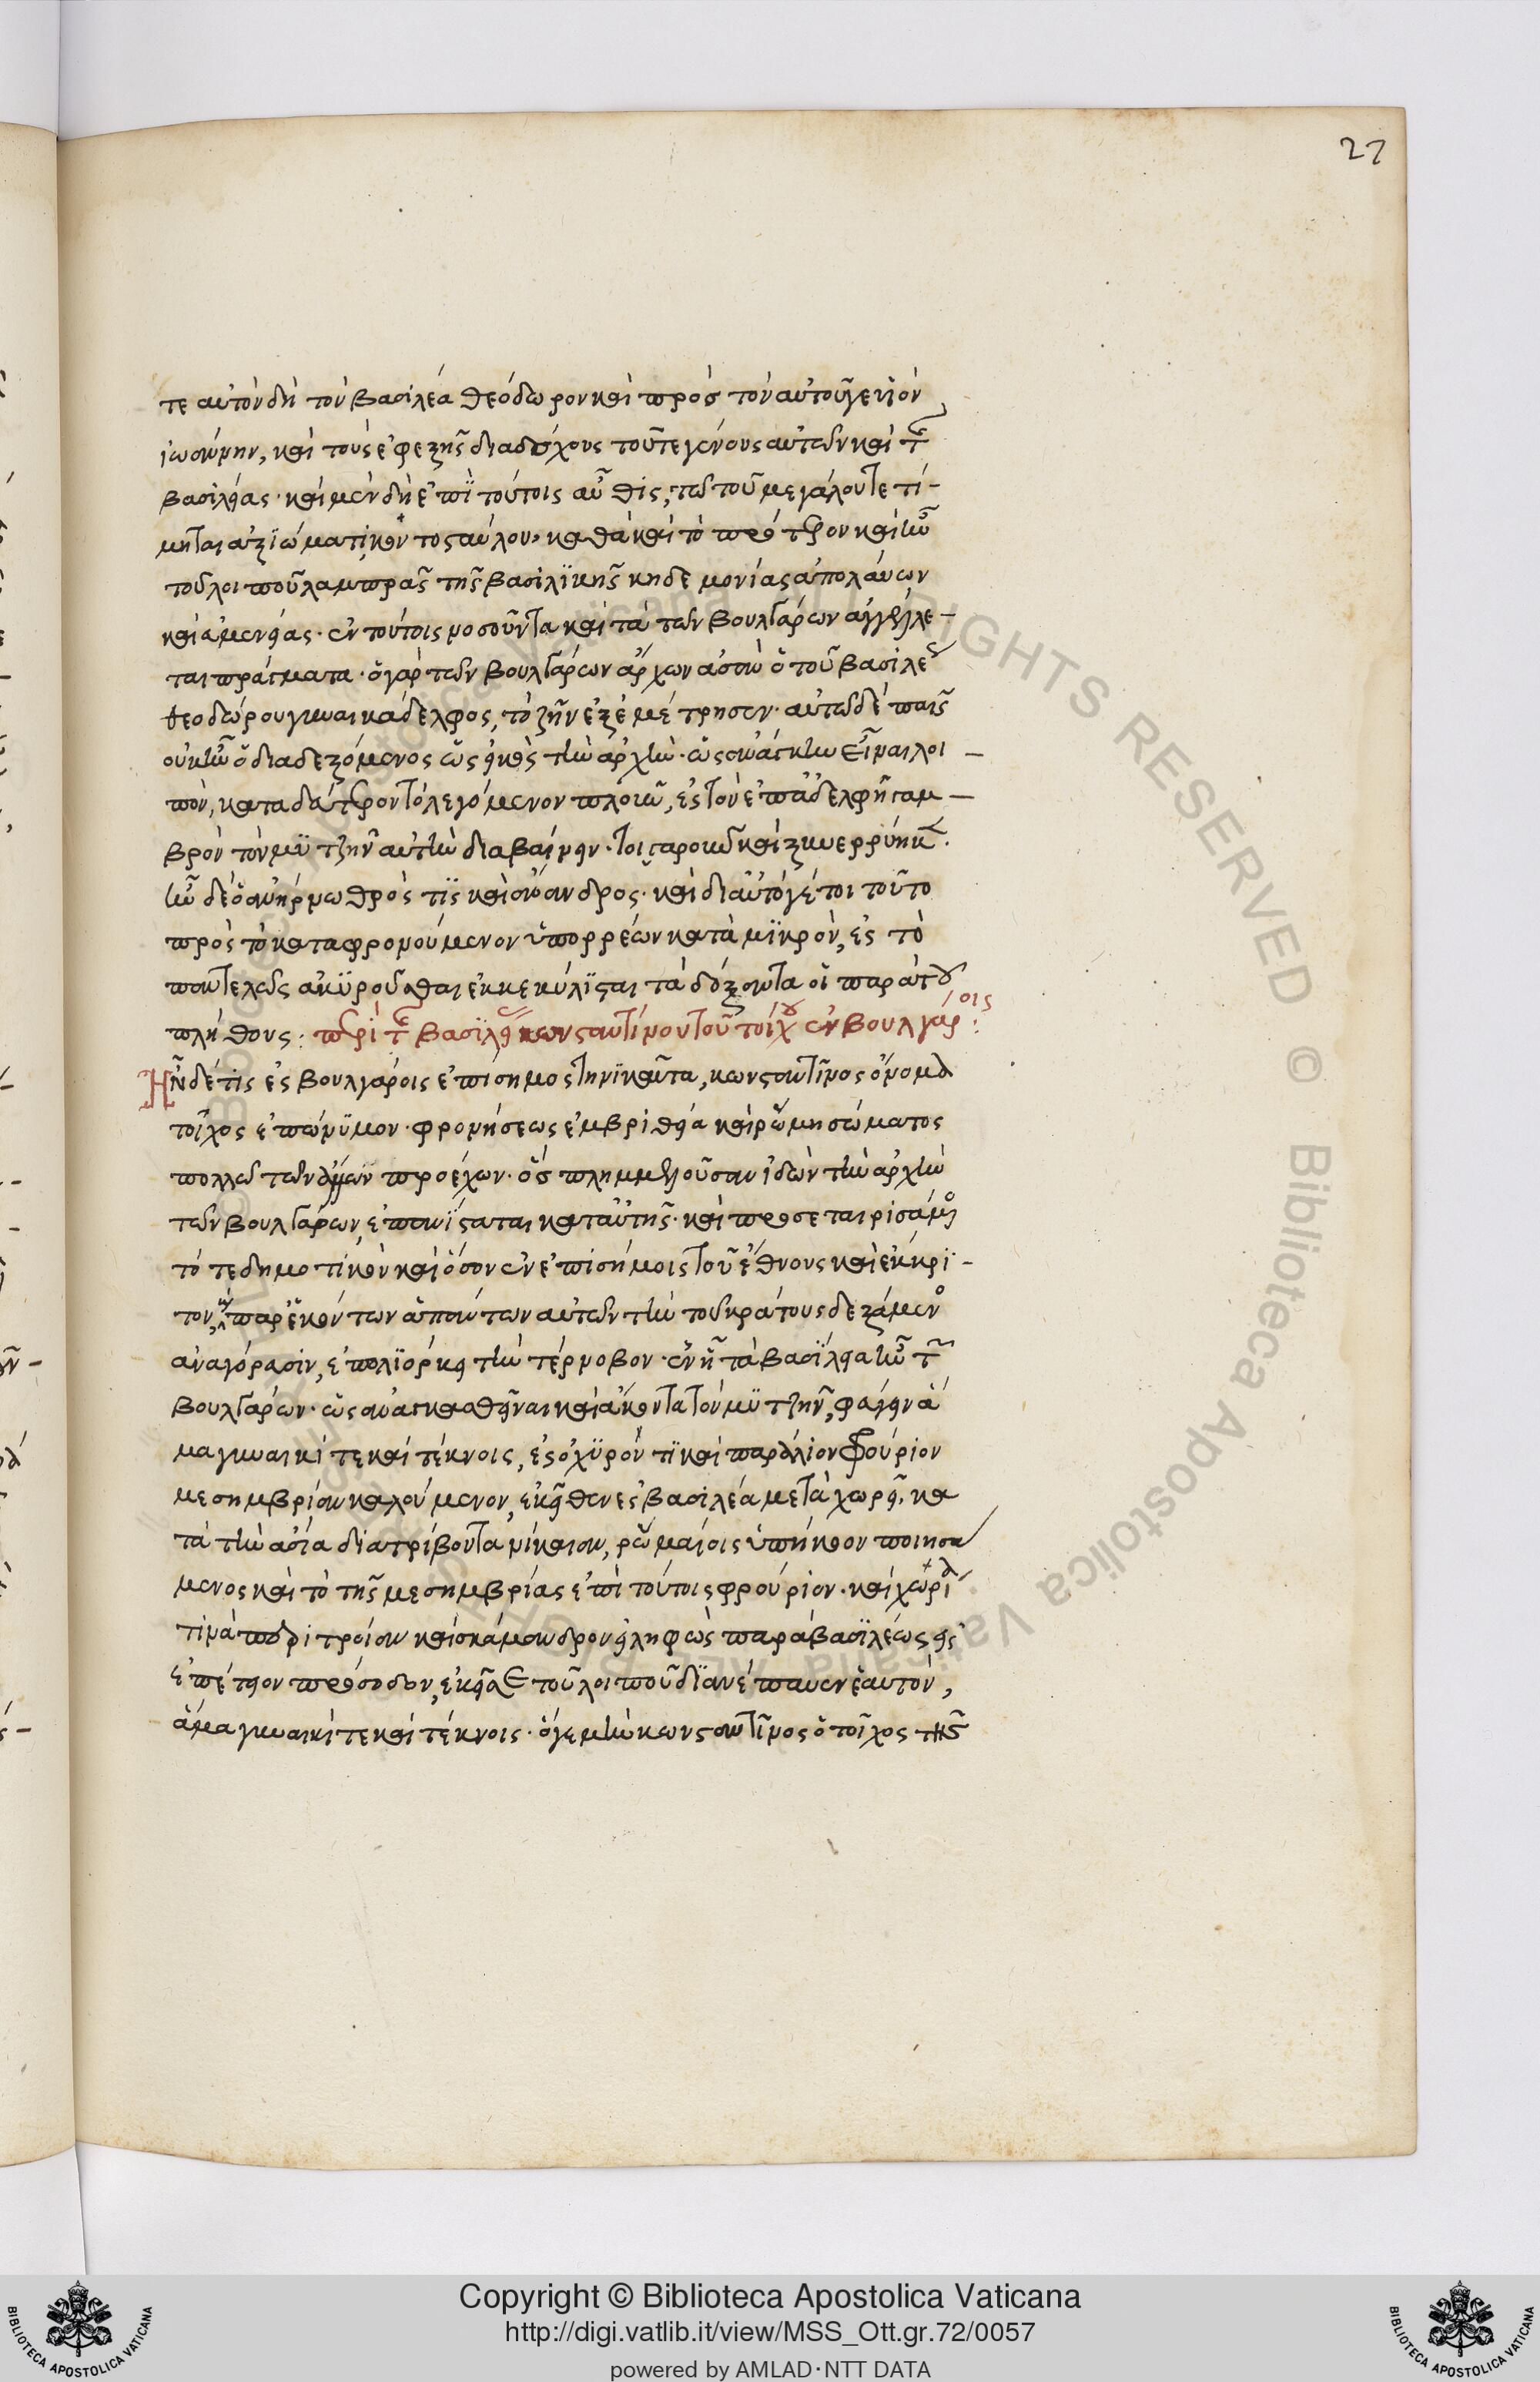 27
τε αὐτὸν δὴ τὸν βασιλέα θεόδωρον καὶ πρὸς τὸν αὐτοῦγε υἱὸν
ἰωάννην, καὶ τοὺς ἐφεξῆς διαδόχους τοῦτε γένους αὐτῶν καὶ τῆς
βασιλείας· καὶ μὲν δὴ ἐπὶ τούτοις αὖθις, τῶ τοῦ μεγάλου τετί-
μηται ἀξιώματι κοντοσταύλου, καθὰ καὶ τὸ πρότερον καὶ ἦν
τοῦ λοιποῦ λαμπρᾶς τῆς βασιλικῆς κηδεμονίας ἀπολαύων
καὶ ἀμενείας· ἐν τούτοις νοσοῦντα καὶ τὰ τῶν βουλγάρων ἀγγέλλε-
ται πράγματα· ὁ γὰρ τῶν βουλγάρων ἄρχων ἀσὰν ὁ τοῦ βασιλέως
θεοδώρου γυναικάδελφος, τὸ ζῆν ἐξεμέτρησεν· αὐτῶ δὲ παῖς
οὐκ ἦν ὁ διαδεξόμενος ὡς εἰκὸς τὴν ἀρχήν· ὡς ἀνάγκην εἶναι λοι-
πὸν, κατὰ δεύτερον τὸ λεγόμενον πλοῦν, ἐς τὸν ἐπ' ἀδελφῆ γαμ-
βρὸν τὸν μυτζῆν αὐτὴν διαβαίνειν·
ἦν δὲ ὁ ἀνὴρ νωθρός τις καὶ ἄνανδρος· καὶ δι' αὐτόγέ τοι τοῦτο
πρὸς τὸ καταφρονούμενον ὑπορρέων κατὰ μικρὸν, ἐς τὸ
παντελῶς ἀκυροῦσθαι ἐκκεκύλισται τὰ δόξαντα οἱ παρὰ τοῦ
πλήθους: περὶ τῆς βασιλείας κωνσταντίνου τοῦ τοίχου ἐν βουλγάροις:
Ἦν δέ τις ἐς βουλγάροις ἐπίσημος τηνικαῦτα, κωνσταντῖνος ὄνομα
τοῖχος ἐπώνυμον· φρονήσεως ἐμβριθεία καὶ ῥώμη σώματος
πολλῶ τῶν ἄλλων προέχων· ὃς πλημμελοῦσαν ἰδὼν τὴν ἀρχὴν
τῶν βουλγάρων, ἐπανίσταται κατ' αὐτῆς· καὶ προσεταιρισάμενος
τό τε δημοτικὸν καὶ ὅσον ἐν ἐπισήμοις τοῦ ἔθνους καὶ ἔκκρι-
τον, παρ' ἑκόντων ἁπάντων αὐτῶν τὴν τοῦ κράτους δεξάμενος
ἀναγόρασιν, ἐπολιόρκει τὴν τέρνοβον· ἐν ἧ τὰ βασίλεια ἦν τῶν
βουλγάρων· ὡς ἀναγκασθῆναι καὶ ἄκοντα τὸν μυτζῆν, φυγεῖν ἅ
μα γυναικί τε καὶ τέκνοις, ἐς ὀχυρόν τι καὶ παράλιον φρούριον
μεσημβρίαν καλούμενον, ἐκεῖθεν ἐς βασιλέα μεταχωρεῖ, κα
τὰ τὴν ἀσία διατρίβοντα νίκαιαν, ῥωμαίοις ὑπήκοον ποιησά
μενος καὶ τὸ τῆς μεσημβρίας ἐπὶ τούτοις φρούριον· καὶ χωρία
τινὰ περὶ τροίαν καὶ σκάμανδρον εἰληφὼς παρὰ βασιλέως εἰς
ἐπέτειον πρόσοδον, ἐκεῖσε τοῦ λοιποῦ διανέπαυεν ἑαυτὸν,
ἅμα γυναικί τε καὶ τέκνοις· ὅγε μὴν κωνσταντῖνος ὁ τοῖχος τῆς
Copyright © Biblioteca Apostolica Vaticana
http://digi.vatlib.it/view/MSS_Ott.gr.72/0057
powered by AMLAD·NTT DATA